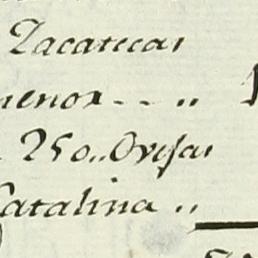 Zacatecas
menor - - ..
250.. Ovejas
Catalina ..